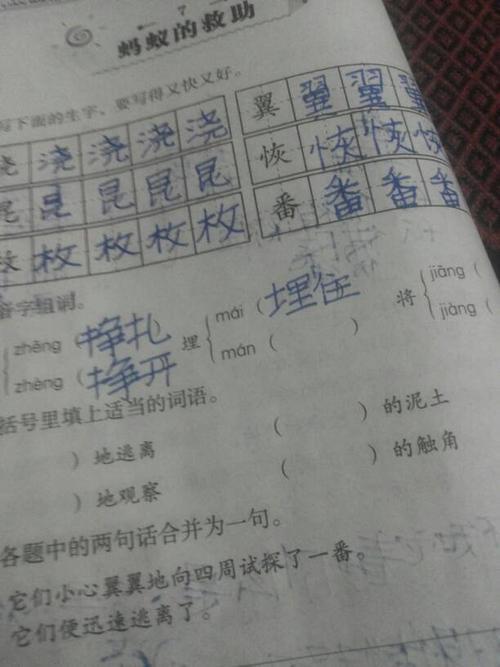 蚂蚁的救助
写下面的生字，要写得又快又好。
浇 浇 浇 浇 翼 翼 翼 翼
昆 昆 昆 昆 恢 恢 恢 恢
枚 枚 枚 枚 番 番 番 番
音字组词。
zhēng (挣扎 埋 mái (埋住 将 jiāng (
zhèng (挣开 mán ( ) jiàng (
括号里填上适当的词语。
)地逃离 ( )的泥土
)地观察 ( )的触角
各题中的两句话合并为一句。
它们小心翼翼地向四周试探了一番。
它们便迅速逃离了。